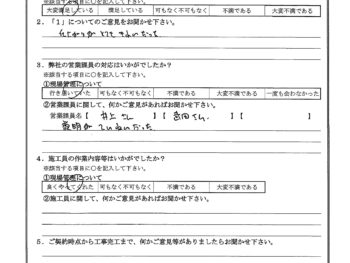 ※該当する項目に○を記入して下さい。
大変満足している 満足している 可もなく不可もなく 不満である 大変不満である
2．「1」についてのご意見をお聞かせ下さい。
仕上がりが とても きれいだった
3．弊社の営業課員の対応はいかがでしたか？
※該当する項目に○を記入して下さい。
①現場管理について
行き届いていた 可もなく不可もなく 不満である 大変不満である 一度も会わなかった
②営業課員に関して、何かご意見があればお聞かせ下さい。
営業課員名【 井上 さん 】【 吉田 さん 】【 】
説明が ていねいだった
4．施工員の作業内容等はいかがでしたか？
※該当する項目に○を記入して下さい。
①現場管理について
良くやってくれた 可もなく不可もなく 不満である 大変不満である
②施工員に関して、何かご意見がありればお聞かせ下さい。
5．ご契約時点から工事完工まで、何かご意見等がありましたらお聞かせ下さい。